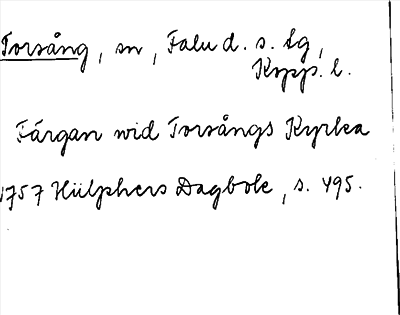 Torsång, sn, Falu d. s. lg,
Kopp. l.
Färgan wid Torsångs Kyrka
1757 Hülphers Dagbok, s. 495.